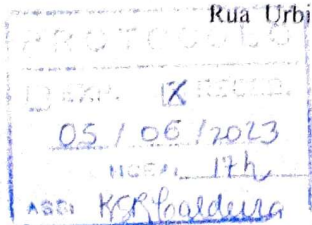 Rua Urbi
PROTOCOLO
EXP. X RECEB.
05 / 06 / 2023
HORA: 17h
ASS: KSR Caldeira